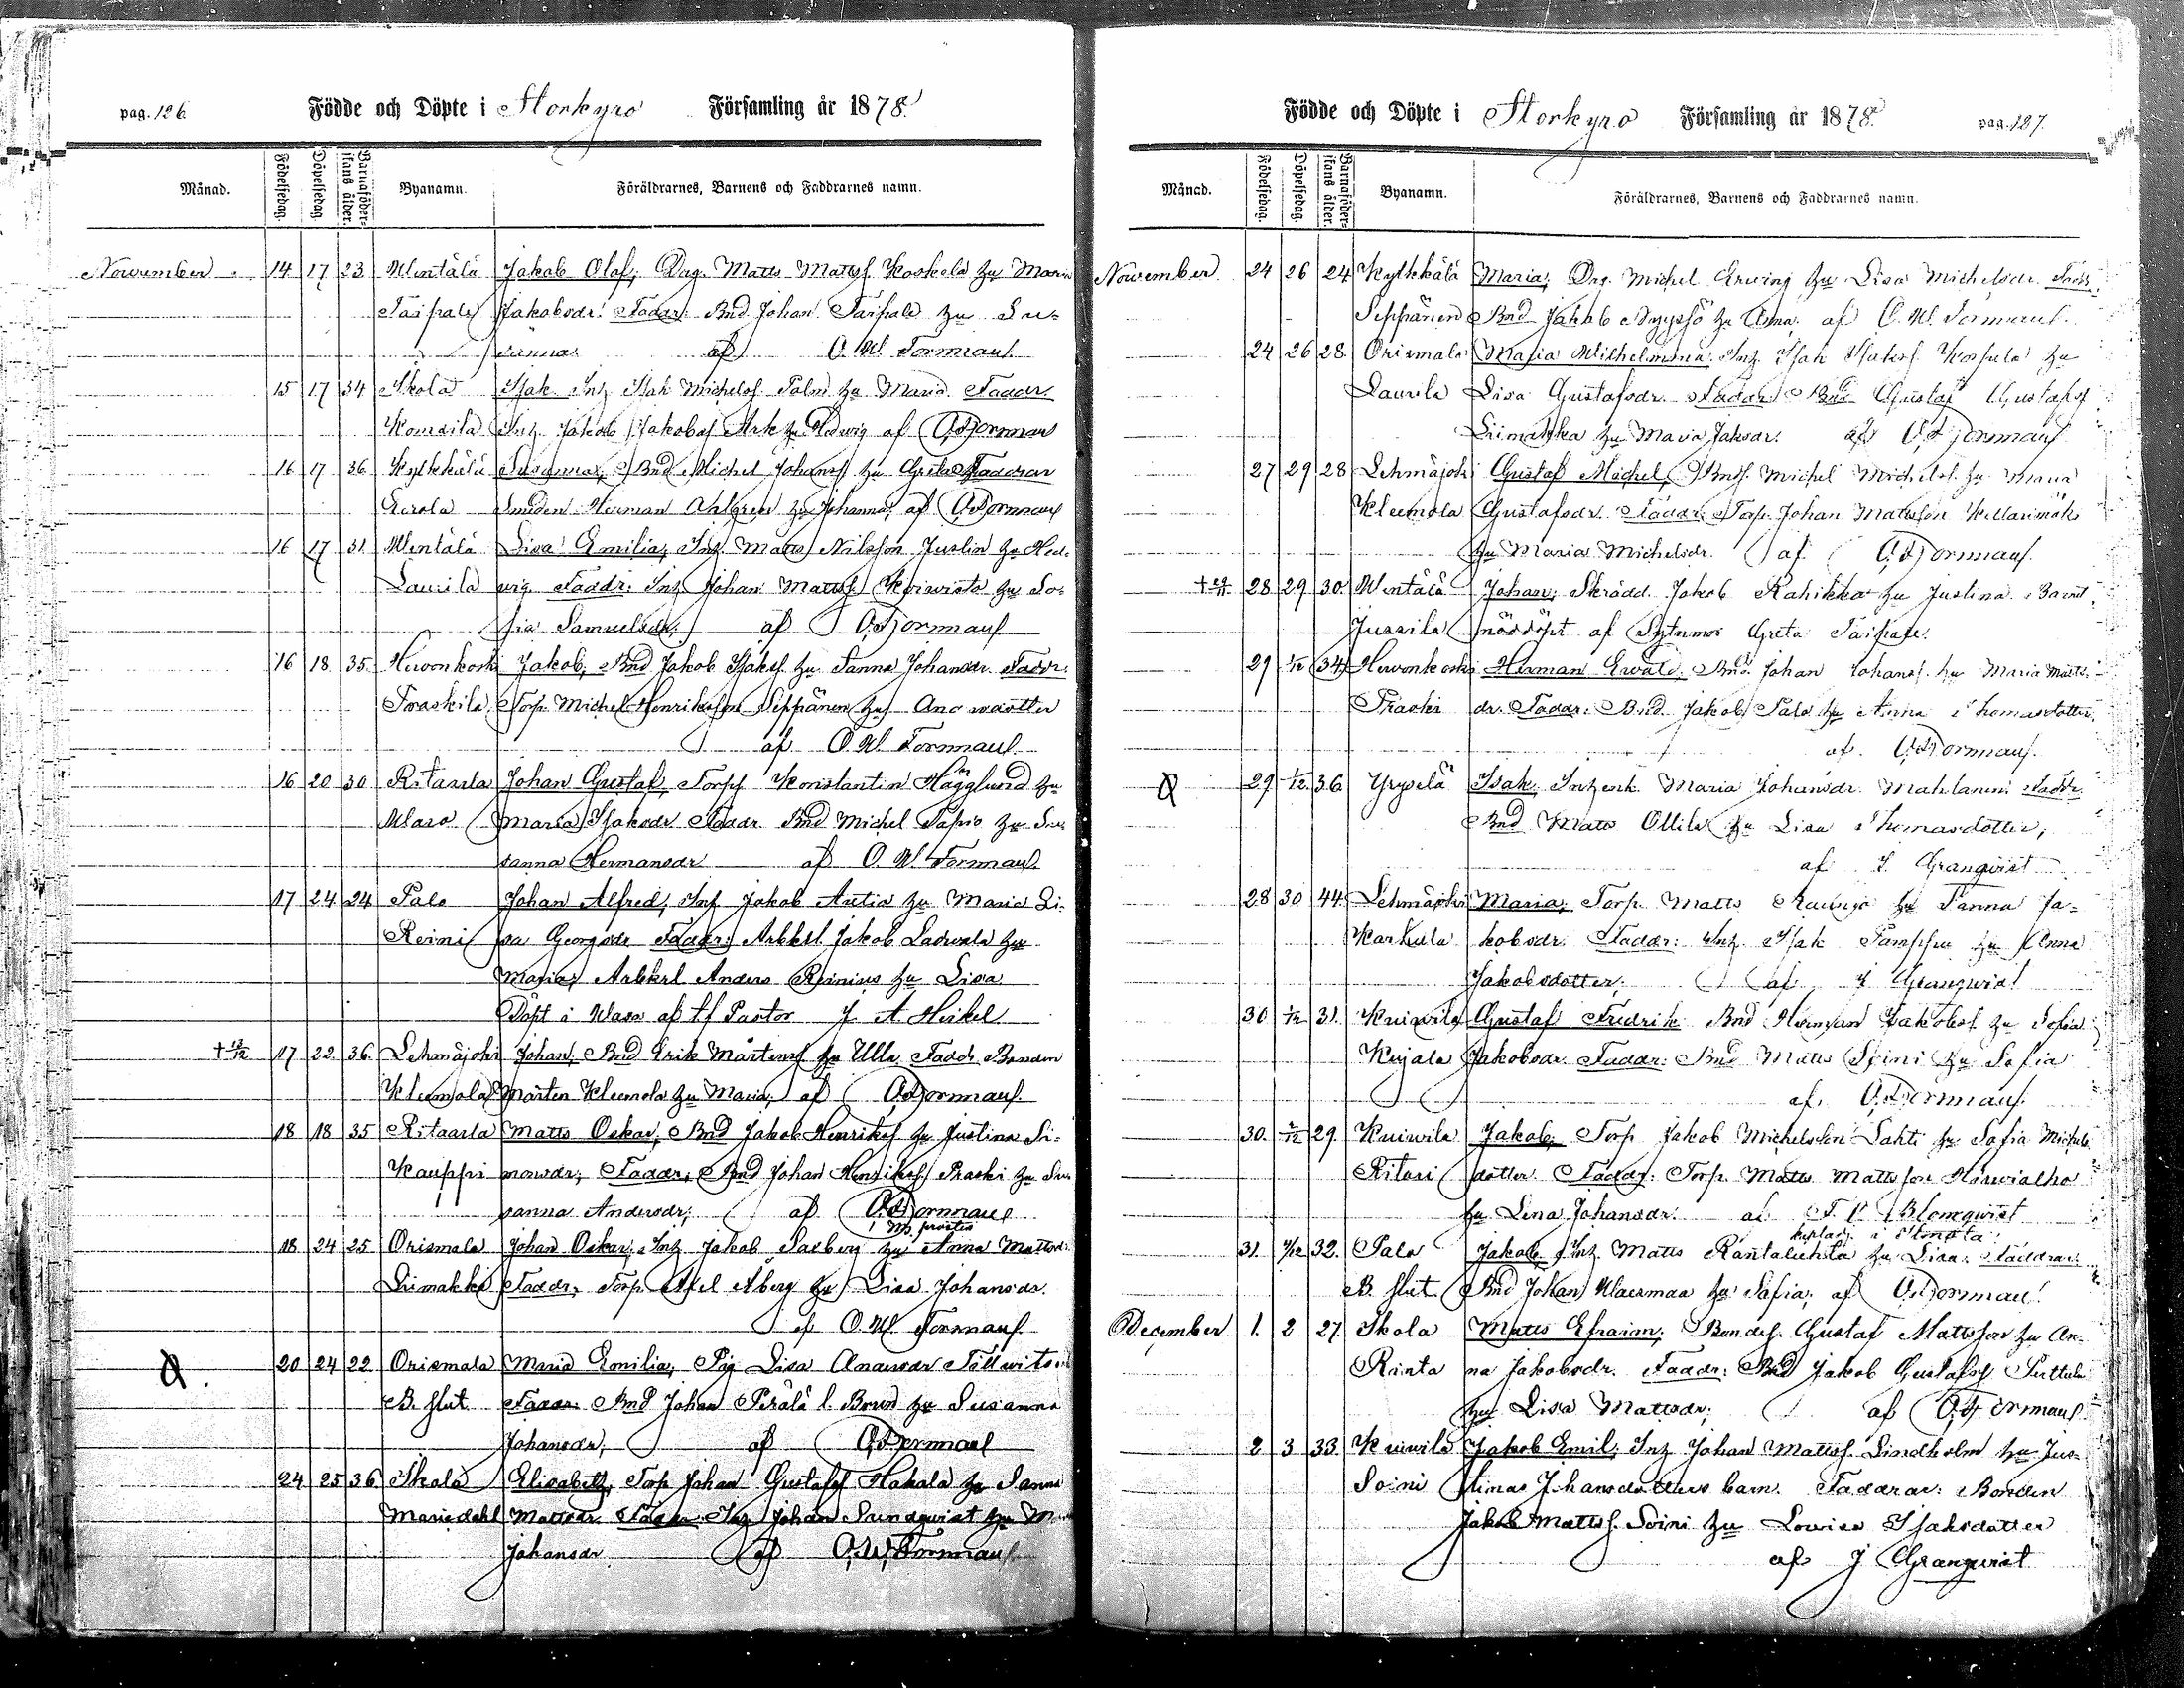 pag. 126.
Födde och Döpte i Storkyro Församling år 1878.
Månad. Födelsedag. Döpelsedag. Barnaföderskans ålder. Byanamn. Föräldrarnes, Barnens och Faddrarnes namn.
November 14 17 23 Wentälä Jakob Olaf; Drg. Matts Mattsf. Koskela hu Maria
Taipale Jakobsdr. Faddr: Bnd Johan Taipale hu Su-
sanna. af O. W. Forsman
15 17 34 Ikola Isak Inh Isak Michelsf. Palm hu Maria. Faddr.
Inh. Jakob Jakobsf Ark hu Hedvig af
16 17 36 Kylkkälä Susanna; Bnd Michel Johansf hu Greta. Faddrar
Eerola Smeden Herman Ahlgren hu Johanna; af
16 17 31 Wentälä Lisa Emilia; Inh. Matts Nilsson Juslin hu Hed-
Laurila vig Faddr. Inh Johan Mattsf Koivisto hu So-
fia Samuelsdr; af
16 18 35. Hevonkoski Jakob; Bnd Jakob Isaksf. hu Sanna Johansdr. Faddr:
Torp. Michel Henriksson Seppänen hu
af O. W.
16 20 30 Ritaala Johan Gustaf, Torpf Konstantin Hägglund hu
Maria Isaksdr Faddr Bnd Michel Sapio hu Su-
sanna Hermansdr af O. W.
17 24 24 Palo Johan Alfred, Inh Jakob Antia hu Maria Li-
Reini sa Georgsdr Faddr: Arbkrl Jakob hu
Maria, Arbkrl Anders Reinius hu Lisa
Döpt i Wasa af t.f. Pastor J. A. Heikel
+ 17 22 36 Lehmäjoki Johan; Bnd Erik Mårtensf hu Ulla Faddr. Bonden
Kleemola Mårten Kleemola hu Maria; af
18 18 35 Ritaala Matts Oskar; Bnd Jakob Henriksf hu Justina Si-
Kauppi monsdr; Faddr; Bnd Johan Henriksf Praski hu Su-
sanna Andersdr; af
18 24 25 Orismala Johan Oskar; Inh. Jakob Saxberg hu Anna Mattsd:
Liimakka Faddr; Torp. Axel Åberg hu Lisa Johansdr.
af O. W.
20 24 22 Orismala Maria Emilia; Pig. Lisa
B. slut Faddr. Bnd Johan Perälä l. hu Susanna
Johansdr; af
24 25 36 Ikola Elisabeth; Torp. Johan Gustafsf Hakala hu Sanna
Mariedahl Mattsdr. Faddr. Inh Johan Sundqvist hu
Johansdr af O. W.
Födde och Döpte i Storkyro Församling år 1878. pag. 127.
Månad. Födelsedag. Döpelsedag. Barnaföderskans ålder. Byanamn. Föräldrarnes, Barnens och Faddrarnes namn.
November 24 26 24 Kylkkälä Maria; Drg. Michel hu Lisa Michelsdr. Faddr.
Seppänen Bnd Jakob hu Anna. af O. W.
24 26 28. Orismala Maria Wilhelmina; Inh. Isak Isaksf. hu
Laurila Lisa Gustafsdr. Faddr. Bnd Gustaf Gustafsf
Liimakka hu Maria af
27 29 28 Lehmäjoki Gustaf Michel; Bndf. Michel Michelsf. hu Maria
Kleemola Gustafsdr. Faddr. Torp. Johan Mattsson
hu Maria Michelsdr. af
+ 28 29 30. Wentälä Johan; Skrädd. Jakob Rahikka hu Justina. Barnet
Jussila nöddöpt af Greta Taipale.
29 1/12 34 Hevonkoski Herman Ewald; Bnd. Johan Johansf. hu Maria Matts-
Praski dr. Faddr: Bnd Jakob Palo hu Anna Thomasdotter.
af
29 1/12 36 Yryselä Isak; Inhenk. Maria Johansdr. Mahlamm Faddr.
Bnd Matts Ollila hu Lisa Thomasdotter;
af J. Granqvist
28 30 44 Lehmäjoki Maria; Torp. Matts hu Sanna Ja-
Karhula kobsdr. Faddr: Inh. Isak Pamppu hu Anna
Jakobsdotter; af J Granqvist
30 1/12 31. Kuivila Gustaf Fredrik Bnd Herman Jakobsf. hu Sofia
Kujala Jakobsdr. Faddr: Bnd Matts Soini hu Sofia
af
30. 2/12 29. Kuivila Jakob; Torp Jakob Michelsson Lahti hu Sofia Michels
dotter. Faddr: Torp. Matts Mattsson
hu Lena Johansdr. af Blomqvist
kaplan i Ilmola.
31. 32. Palo Jakob; Inh. Matts Rantaluhta hu Lisa. Faddrar.
B. slut. Bnd Johan Waismaa hu Sofia; af
December 1. 2 27. Ikola Matts Efraim; Bondes. Gustaf Mattsson hu An-
Ranta na Jakobsdr. Faddr: Bnd Jakob Gustafsf Puttula
hu Lisa Mattsdr; af
2 3 33. Kuivila Jakob Emil; Inh Johan Mattsf. Lindholm hu Jus-
Soini tinas Johansdotters barn. Faddrar: Bonden
Jakob Mattsf. Soini hu Lovisa Isaksdotter
af J Granqvist